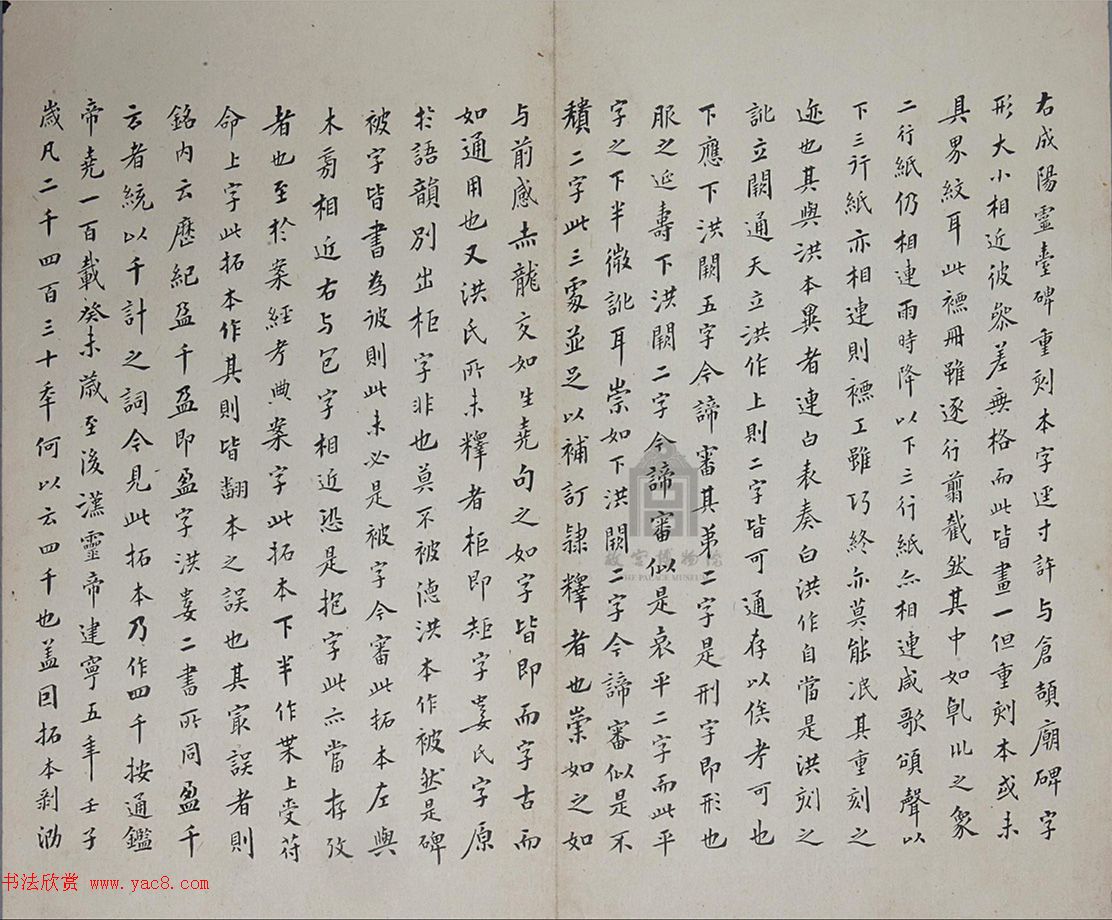 右成陽靈臺碑重刻本字逕寸許与倉頡廟碑字
形大小相近彼叅差無格而此皆畫一但重刻本或未
具界紋耳此褾冊雖逐行翦截然其中如乹川之象
二行紙仍相連雨時降以下三行紙亦相連咸歌頌聲以
下三行紙亦相連則褾工雖巧終亦莫能泯其重刻之
迹也其與洪本異者連白表奏白洪作自當是洪刻之
訛立闕通天立洪作上則二字皆可通存以俟考可也
下應下洪闕五字今諦審其弟二字是刑字即形也
服之延壽下洪闕二字今諦審似是哀平二字而此平
字之下半微訛耳崇如下洪闕二字今諦審似是不
穨二字此三處並足以補訂隷釋者也崇如之如
与前感赤龍交如生堯句之如字皆即而字古而
如通用也又洪氏所未釋者柜即矩字婁氏字原
於語韻別出柜字非也莫不被德洪本作被然是碑
被字皆書為彼則此未必是被字今審此拓本左與
木旁相近右与包字相近恐是抱字此亦當存攷
者也至於案經考典案字此拓本下半作業上受苻
命上字此拓本作其則皆翻本之誤也其冣誤者則
銘內云歷紀盈千盈即盈字洪婁二書所同盈千
云者統以千計之詞今見此拓本乃作四千按通鑑
帝堯一百載癸未歲至後漢靈帝建寧五年壬子
歲凡二千四百三十年何以云四千也盖因拓本剝泐
故宮博物院
THE PALACE MUSEUM
书法欣赏 www.yac8.com